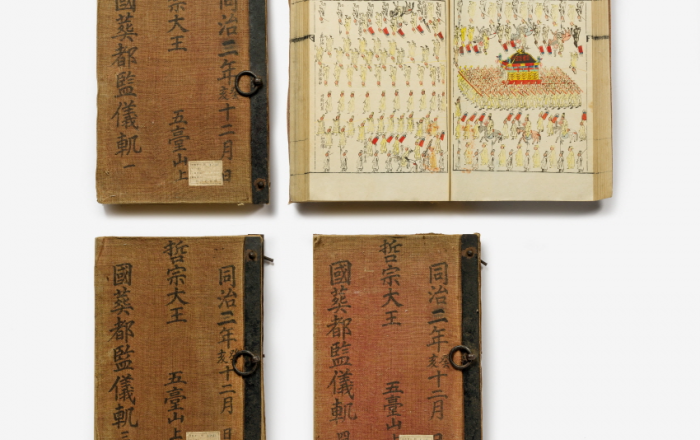 同治二年癸亥十二月 日
宗大王 五臺山上
國葬都監儀軌 一
同治二年癸亥十二月 日
哲宗大王 五臺山上
國葬都監儀軌 三
同治二年癸亥十二月 日
哲宗大王 五臺山上
國葬都監儀軌 四